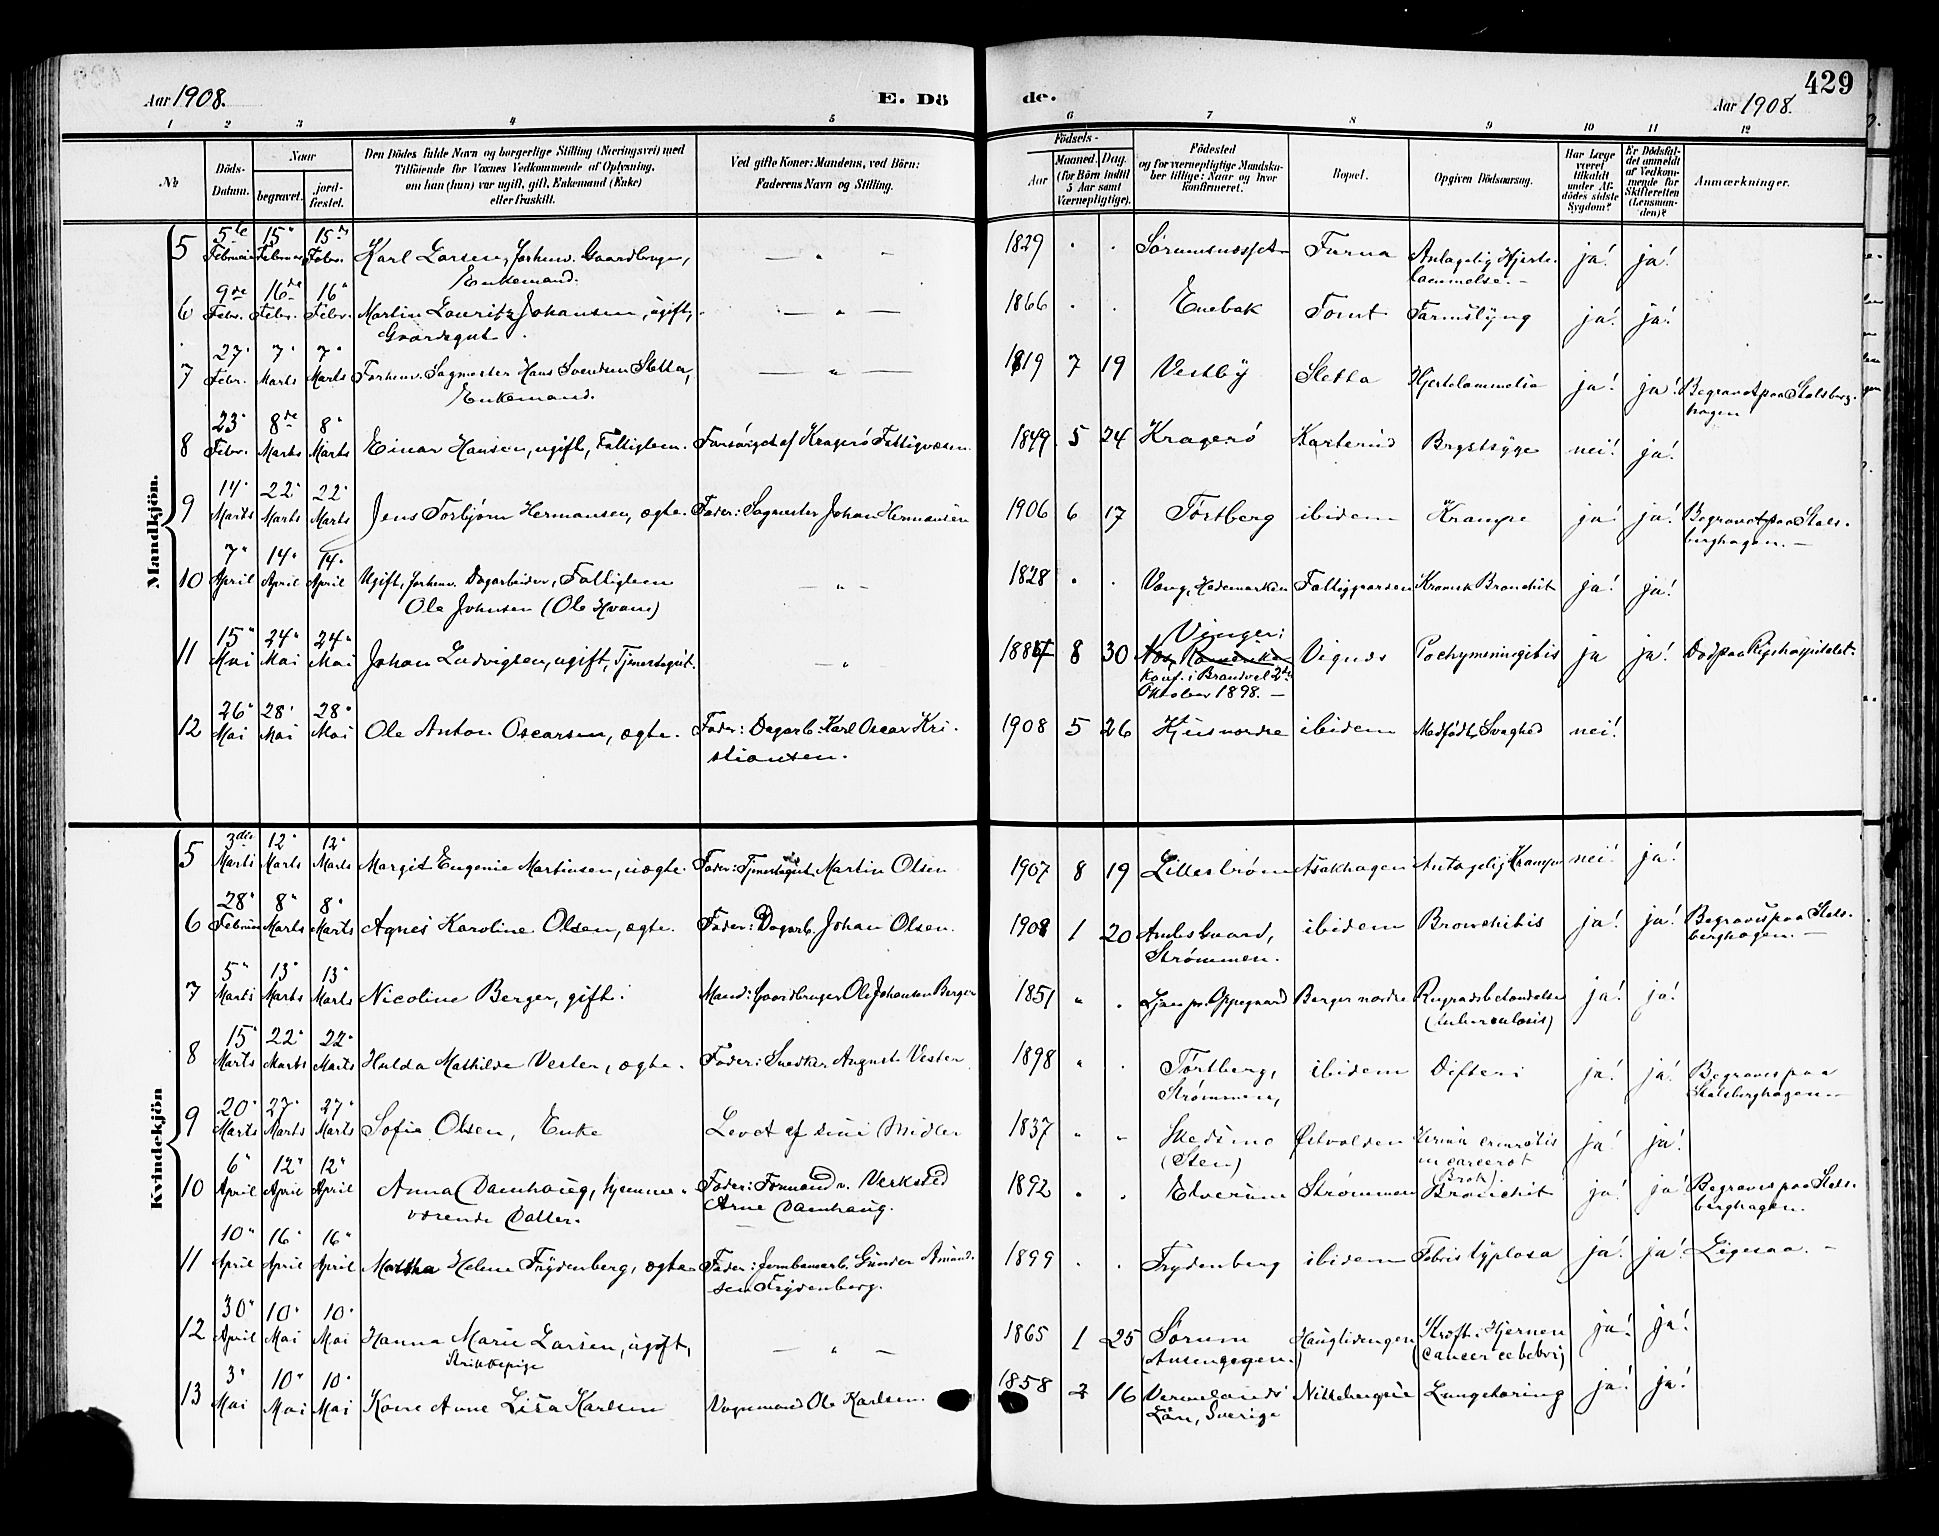 429
Aar 1908.
E. Dö
de.
Aar 1908.
1 2 3 4 5 6 7 8 9 10 11 12
No
Döds-
Datum.
Naar
begravet.
jord-
fæstet.
Den Dödes fulde Navn og borgerlige Stilling (Næringsvei) med
Tilföiende for Voxnes Vedkommende af Oplysning,
om han (hun) var ugift, gift, Enkemand (Enke)
eller fraskilt.
Ved gifte Koner: Mandens, ved Börn:
Faderens Navn og Stilling.
Födsels-
Aar
Maaned. Dag.
(for Börn indtil
5 Aar samt
Værnepligtige).
Födested
og for værnepligtige Mandska-
ber tillige: Naar og hvor
konfirmeret.
Bopæl.
Opgiven Dödsaarsag.
Har Læge
været
tilkaldt
under Af-
dödes sidste
Sygdom?
Er Dödsfal-
det anmeldt
af Vedkom-
mende for
Skifteretten
(Lensman-
den)?
Anmærkninger.
Mandkjön.
5 5te Februar 15" Februar 15de Febr. Karl Larsen, forhenv. Gaardbruger, — " — 1829 Furua Antagelig Hjerte- ja! ja!
Enkemand. lammelse. —
6 9de Febr. 16de Febr. 16" Febr. Martin Lauritz Johansen, ugift, — " — 1866 Enebak Tomt Tarmslyng ja! ja!
Gaardsgut
7 27" Febr. 7" Marts 7" Marts Forhenv. Sagmester Hans Svendsen Sletta, — " — 1819 7 19 Vestby Sletta Hjertelammelse ja! ja! Begravet paa Stalsberg-
Enkemand. hagen
8 23" Febr. 8de Marts 8" Marts Einar Hansen, ugift, Fattiglem. Forsörget af Kragerö Fattigvæsen. 1849 5 24 Kragerö Karterud Brystsyge nei! ja!
9 14" Marts 22" Marts 22" Marts Jens Torbjørn Hermansen, ægte. Fader: Sagmester Johan Hermansen 1906 6 17 Tørtberg ibidem Krampe ja! ja! Begravet paa Stals-
berghagen. —
10 7" April 14" April 14" April Ugift, forhenv. Dagarbeider, Fattiglem — " — 1828 Vang, Hedemarken Fattiggaarden Kronisk Bronchit ja! ja!
Ole Johnsen (Ole Hvam)
11 15" Mai 24" Mai 24" Mai Johan Ludvigsen, ugift, Tjenestegut. — " 8 30 Vinger: Vignes Pachymeningitis ja ja! Död paa Rigshospitalet.
Konf. i Brandval 2de
Oktober 1898. —
12 26" Mai 28" Mai 28" Mai Ole Anton Oscarsen, ægte. Fader: Dagarb. Karl Oscar Kri- 1908 5 26 Hjus nordre ibidem Medfödt Svaghed nei!
stiansen.
Kvindekjön
5 3die Marts 12" Marts 12" Marts Margit Eugenie Martinsen, uægte. Fader: Tjenestegut Martin Olsen 1907 8 19 Lillestrøm Asakhagen Antagelig Krampe nei! ja!
6 28" Februar 8" Marts 8" Marts Agnes Karoline Olsen, ægte. Fader: Dagarb. Johan Olsen. 1908 1 20 ibidem Bronchitis ja! ja! Begraves paa Stals-
Strømmen. berghagen. —
7 5" Marts 13" Marts 13" Marts Nicoline Berger, gift. Mand: Gaardbruger Ole Johansen Berger 1851 " Ljan pr. Oppegaard Berger nordre Rygradsbetændelse ja! ja!
(tuberculosis)
8 15" Marts 22" Marts 22" Marts Hulda Mathilde Vester, ægte. Fader: Snedker August Vester 1898 " Tørtberg, ibidem Difteri ja! ja! Begraves paa
Strømmen, Stalsberghagen. —
9 20" Marts 27" Marts 27" Marts Sofie Olsen, Enke Levet af sine Midler 1837 " " Skedsmo Østvolden Hernia cruralis ja! ja!
(Sten) incarcerat
(Brok).
10 6" April 12" April 12" April Anna Damhaug, hjemme- Fader: Formand v. Verksted 1892 Elverum Strømmen Bronchit ja! ja! Begraves paa Stals-
værende Datter. Arne Damhaug. berghagen.
11 10" April 16" April 16" April Martha Helene Frydenberg, ægte Fader: Jernbanearb. Gunder Amund- 1899 Frydenberg ibidem Febris typhosa ja! ja! Ligesaa. —
sen Frydenberg.
12 30" April 10" Mai 10" Mai Hanna Marie Larsen, ugift, — " — 1865 1 25 Sørum Hauglidengen Kræft i Hjernen ja! ja!
Strikkepige
13 3" Mai 10" Mai 10" Mai Kone Anne Lisa Karlsen Vognmand Ole Karlsen. 1858 16 Vermelands Lungetæring ja! ja!
Län, Sverige